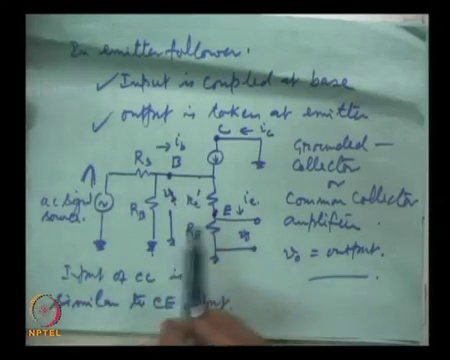 In emitter follower.
✓ Input is coupled at base
✓ output is taken at emitter
C ← ic
→ ib
B
Rs
RB
ac signal
source.
re'
E ie
RE
vo
Grounded -
Collector
or
Common Collector
amplifier
vo = output.
Input of CC is
similar to CE
NPTEL